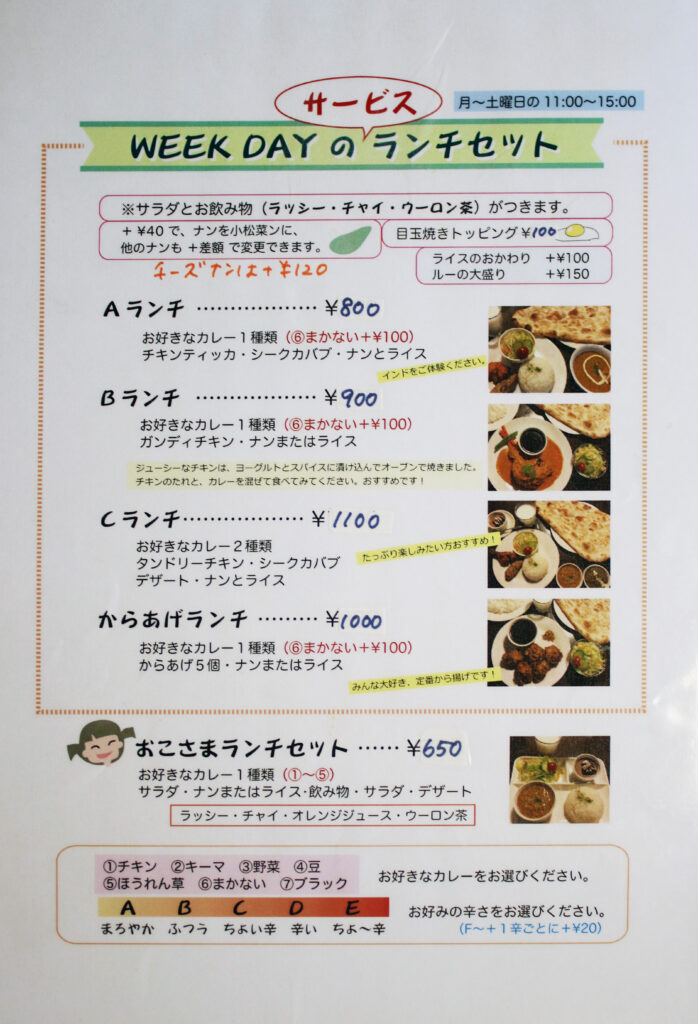 サービス
月〜土曜日の11:00〜15:00
WEEK DAY の ランチセット
※サラダとお飲み物（ラッシー・チャイ・ウーロン茶）がつきます。
＋ ¥40 で、ナンを小松菜ンに、
他のナンも ＋差額 で変更できます。
目玉焼きトッピング ¥100
チーズナンは＋¥120
ライスのおかわり ＋¥100
ルーの大盛り ＋¥150
Aランチ ・・・・・・・・・・・・・・・・・・ ¥800
お好きなカレー１種類（⑥まかない＋¥100）
チキンティッカ・シークカバブ・ナンとライス
インドをご体験ください。
Bランチ ・・・・・・・・・・・・・・・・・・ ¥900
お好きなカレー１種類（⑥まかない＋¥100）
ガンディチキン・ナンまたはライス
ジューシーなチキンは、ヨーグルトとスパイスに漬け込んでオーブンで焼きました。
チキンのたれと、カレーを混ぜて食べてみてください。おすすめです！
Cランチ・・・・・・・・・・・・・・・・・・ ¥1100
お好きなカレー２種類
タンドリーチキン・シークカバブ
デザート・ナンとライス
たっぷり楽しみたい方おすすめ！
からあげランチ ・・・・・・・・・ ¥1000
お好きなカレー１種類（⑥まかない＋¥100）
からあげ５個・ナンまたはライス
みんな大好き、定番から揚げです！
おこさまランチセット ・・・・・・ ¥650
お好きなカレー１種類（①〜⑤）
サラダ・ナンまたはライス・飲み物・サラダ・デザート
ラッシー・チャイ・オレンジジュース・ウーロン茶
①チキン ②キーマ ③野菜 ④豆
⑤ほうれん草 ⑥まかない ⑦ブラック
お好きなカレーをお選びください。
A B C D E
まろやか ふつう ちょい辛 辛い ちょ〜辛
お好みの辛さをお選びください。
（F〜＋１辛ごとに＋¥20）